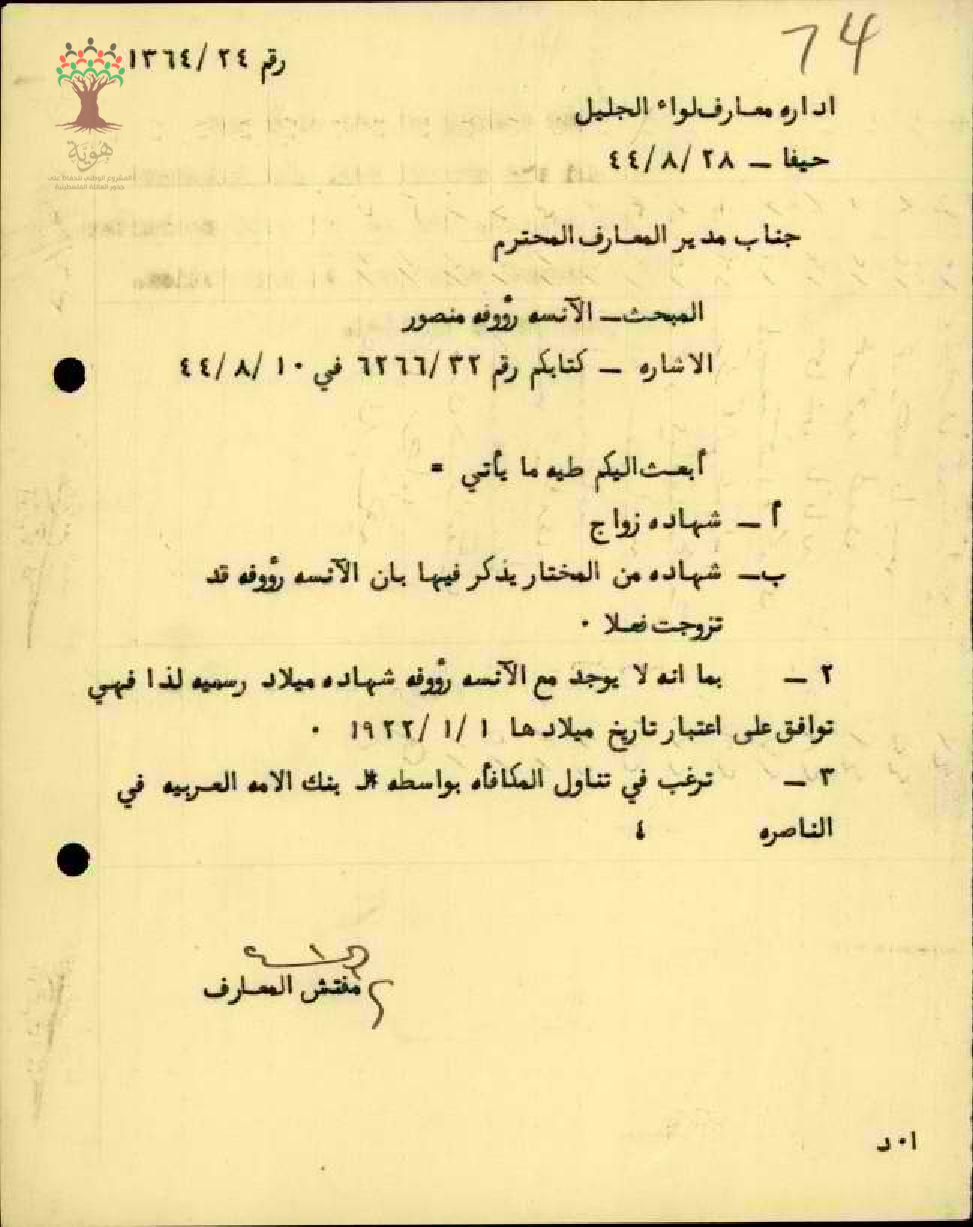 74
رقم ١٣٦٤/٢٤
اداره معارف لواء الجليل
حيفا ــ ٤٤/٨/٢٨
جناب مدير المعارف المحترم
المبحث ــ الآنسه رؤوفه منصور
الاشاره ــ كتابكم رقم ٦٢٦٦/٣٢ في ٤٤/٨/١٠
أبعث اليكم طيه ما يأتي =
أ ــ شهاده زواج
ب ــ شهاده من المختار يذكر فيها بان الآنسه رؤوفه قد
تزوجت فعلا ٠
٢ ــ بما انه لا يوجد مع الآنسه رؤوفه شهاده ميلاد رسميه لذا فهي
توافق على اعتبار تاريخ ميلادها ١٩٢٢/١/١ ٠
٣ ــ ترغب في تناول المكافأه بواسطه بنك الامه العربيه في
الناصره ٤
مفتش المعارف
ا٠د
هوية
المشروع الوطني للحفاظ على
جذور العائلة الفلسطينية